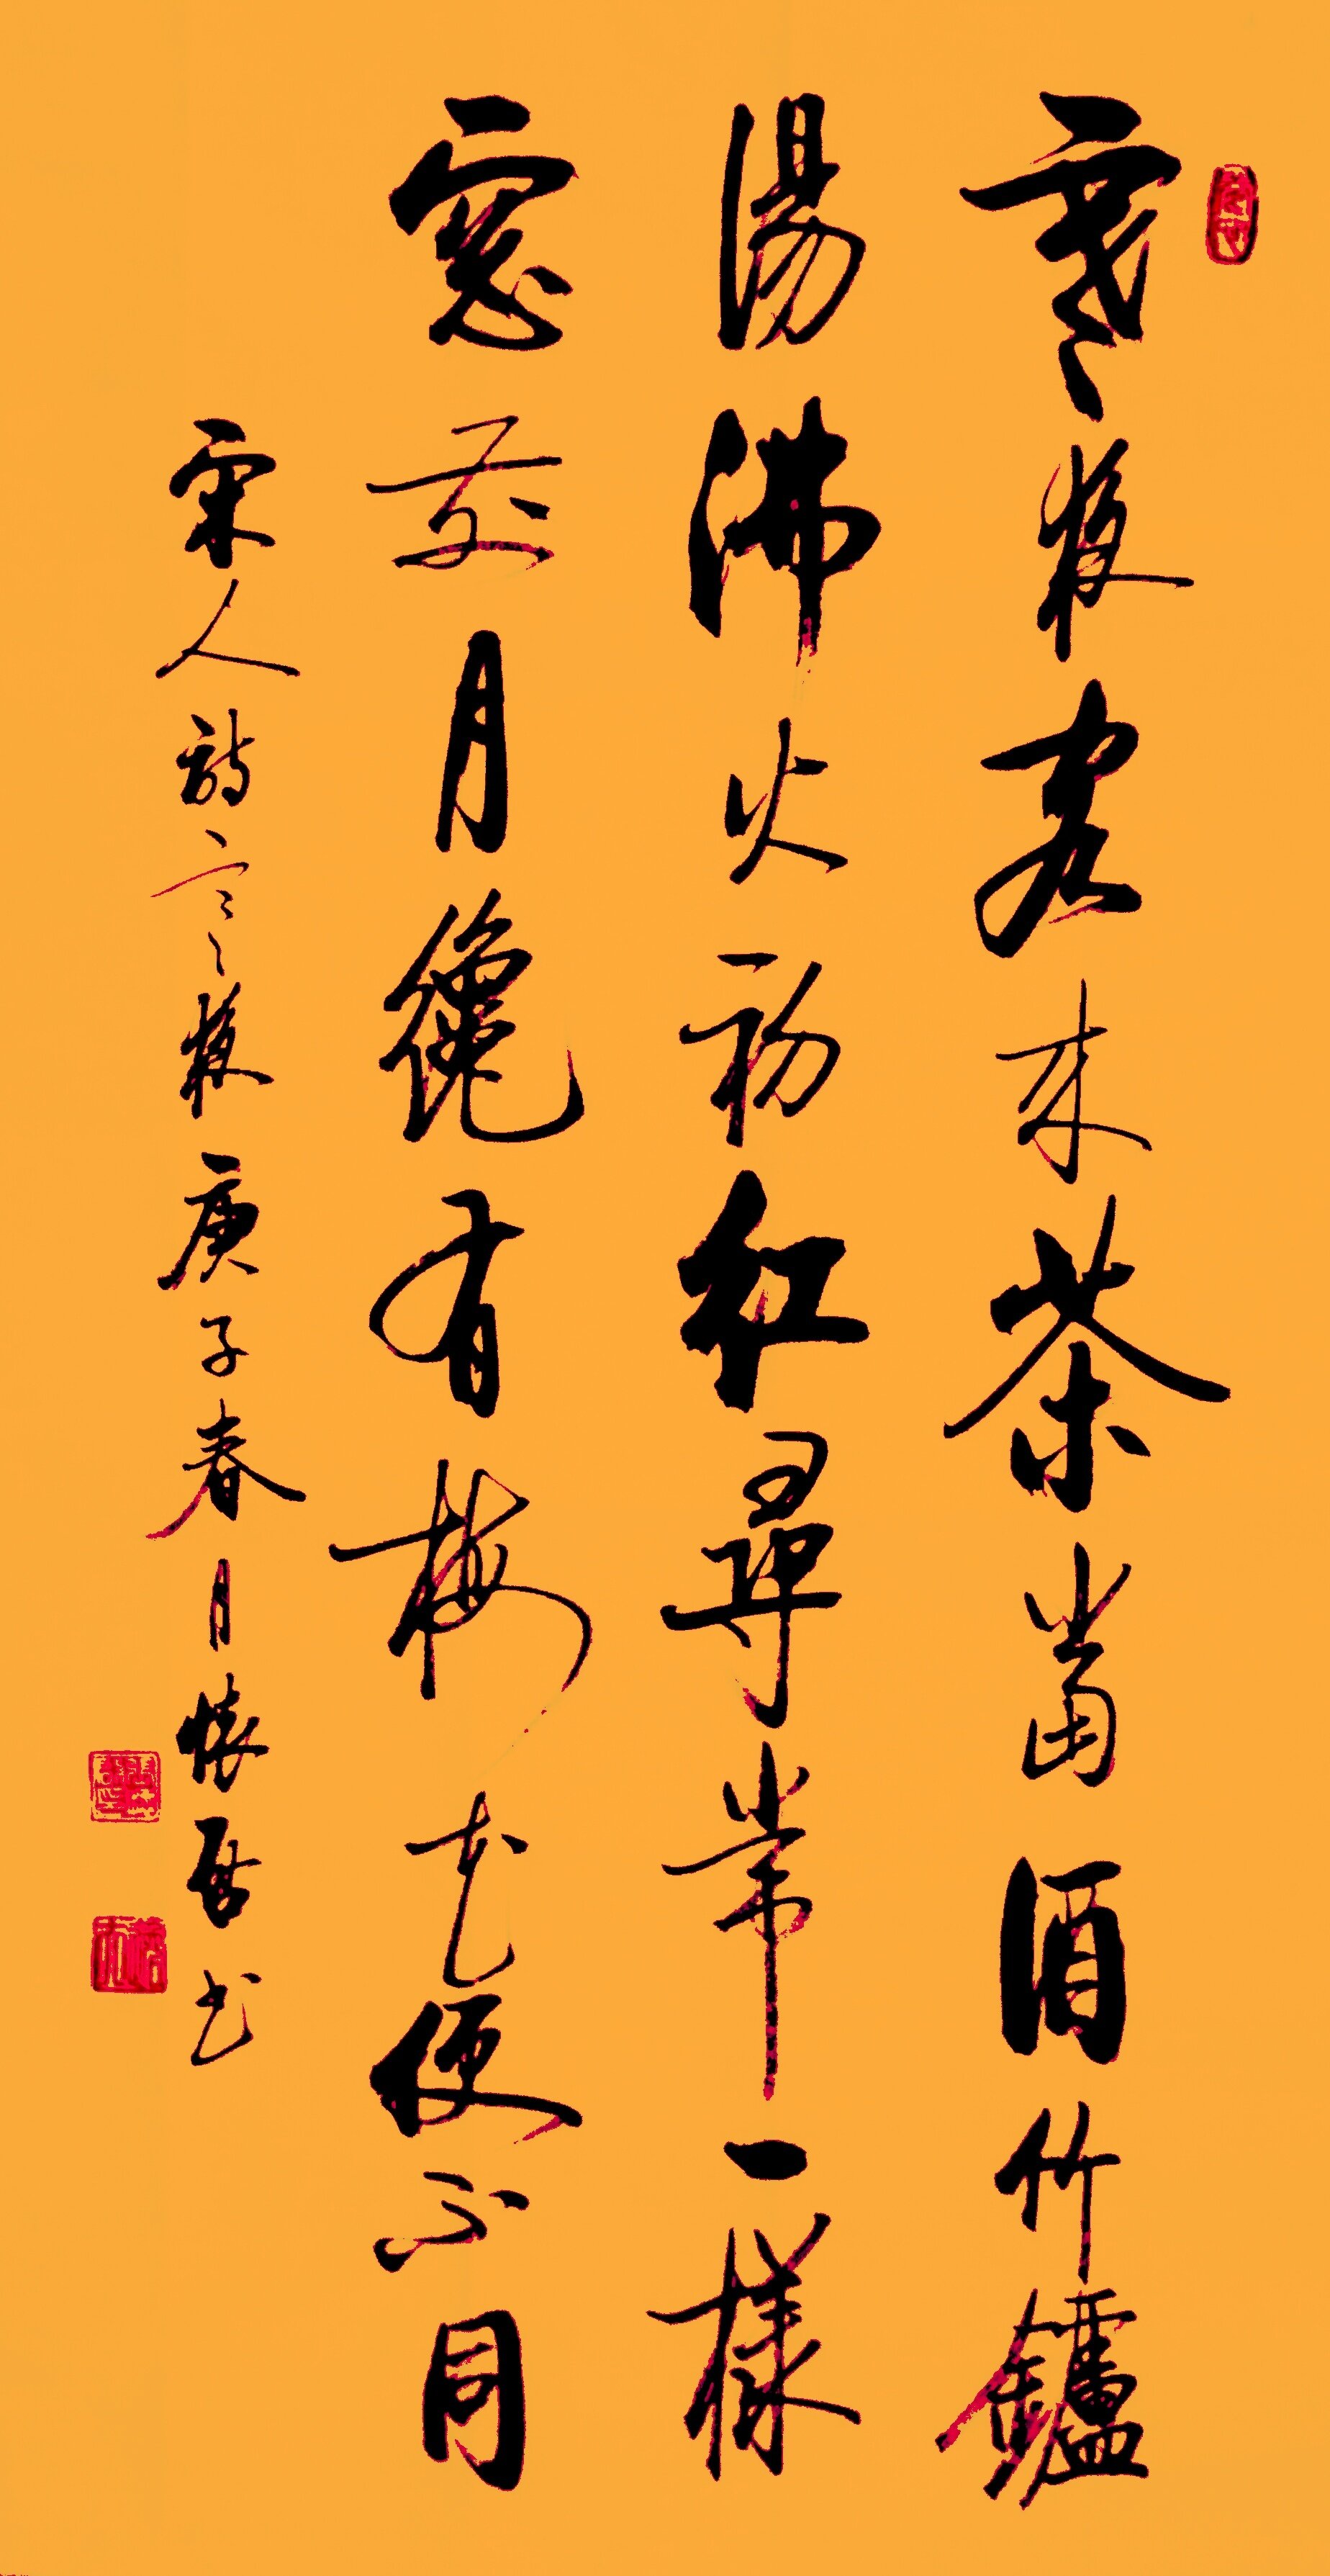 寒夜客来茶當酒竹鑪
湯沸火初紅尋常一樣
窓前月纔有梅花便不同
宋人詩寒夜庚子春月懷啟书